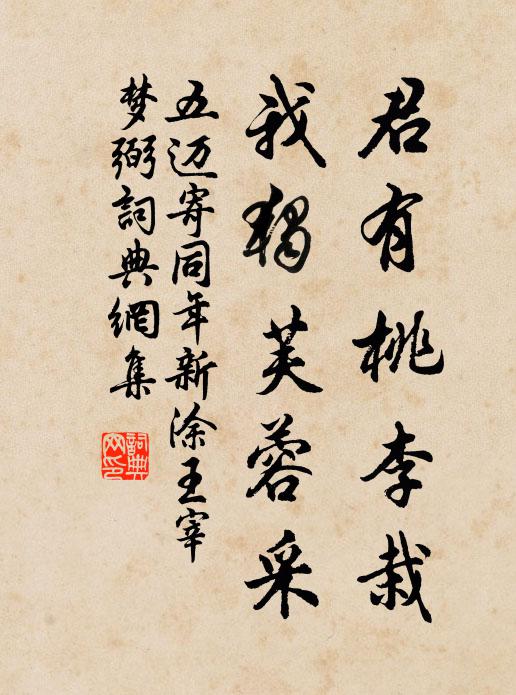 君有桃李栽
我独芙蓉采
五迈寄同年新涂王宰
梦弼詞典網集
詞典网印